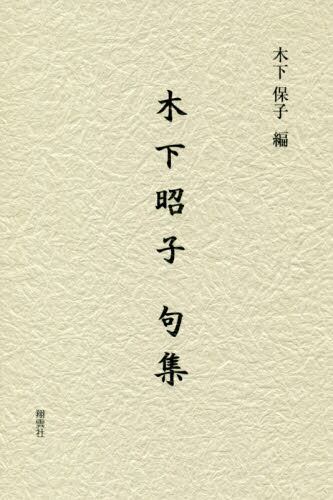 木下保子 編
木下昭子 句集
翔雲社